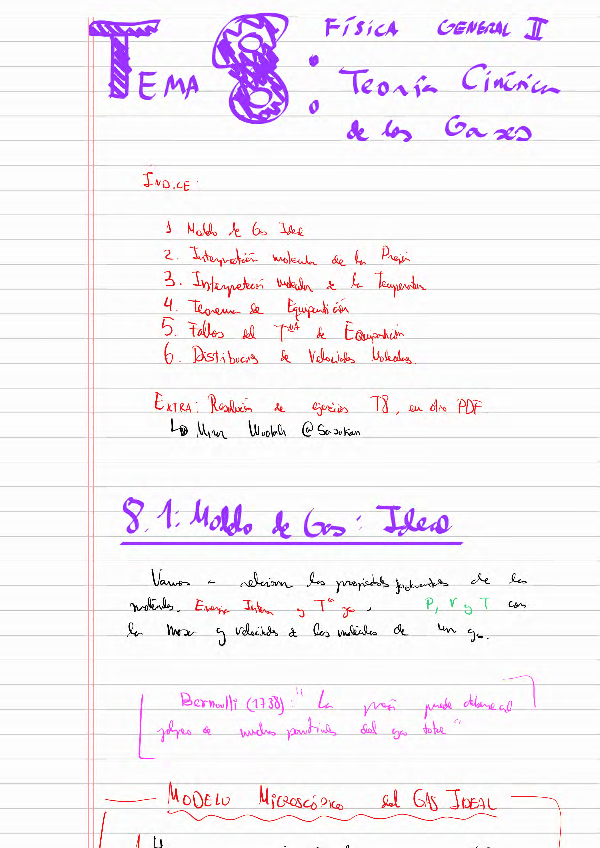 FÍSICA GENERAL II
TEMA 8:
Teoría Cinética
de los Gases
ÍNDICE:
1 Modelo de Gas Ideal
2. Interpretación molecular de la Presión
3. Interpretación molecular de la Temperatura
4. Teorema de Equipartición
5. Fallos del de Equipartición
6. Distribución de Velocidades Moleculares.
EXTRA: Resolución de ejercicios T8, en otro PDF
Mirar Wuolah
8.1: Modelo de Gas: Ideal
Vamos a relacionar las propiedades de las
moléculas. Energía Interna y P, V y T con
la masa y velocidades de las moléculas de un gas.
Bernoulli (1738): " La presión puede al
golpeo de muchas partículas del gas "
MODELO MICROSCÓPICO del GAS IDEAL